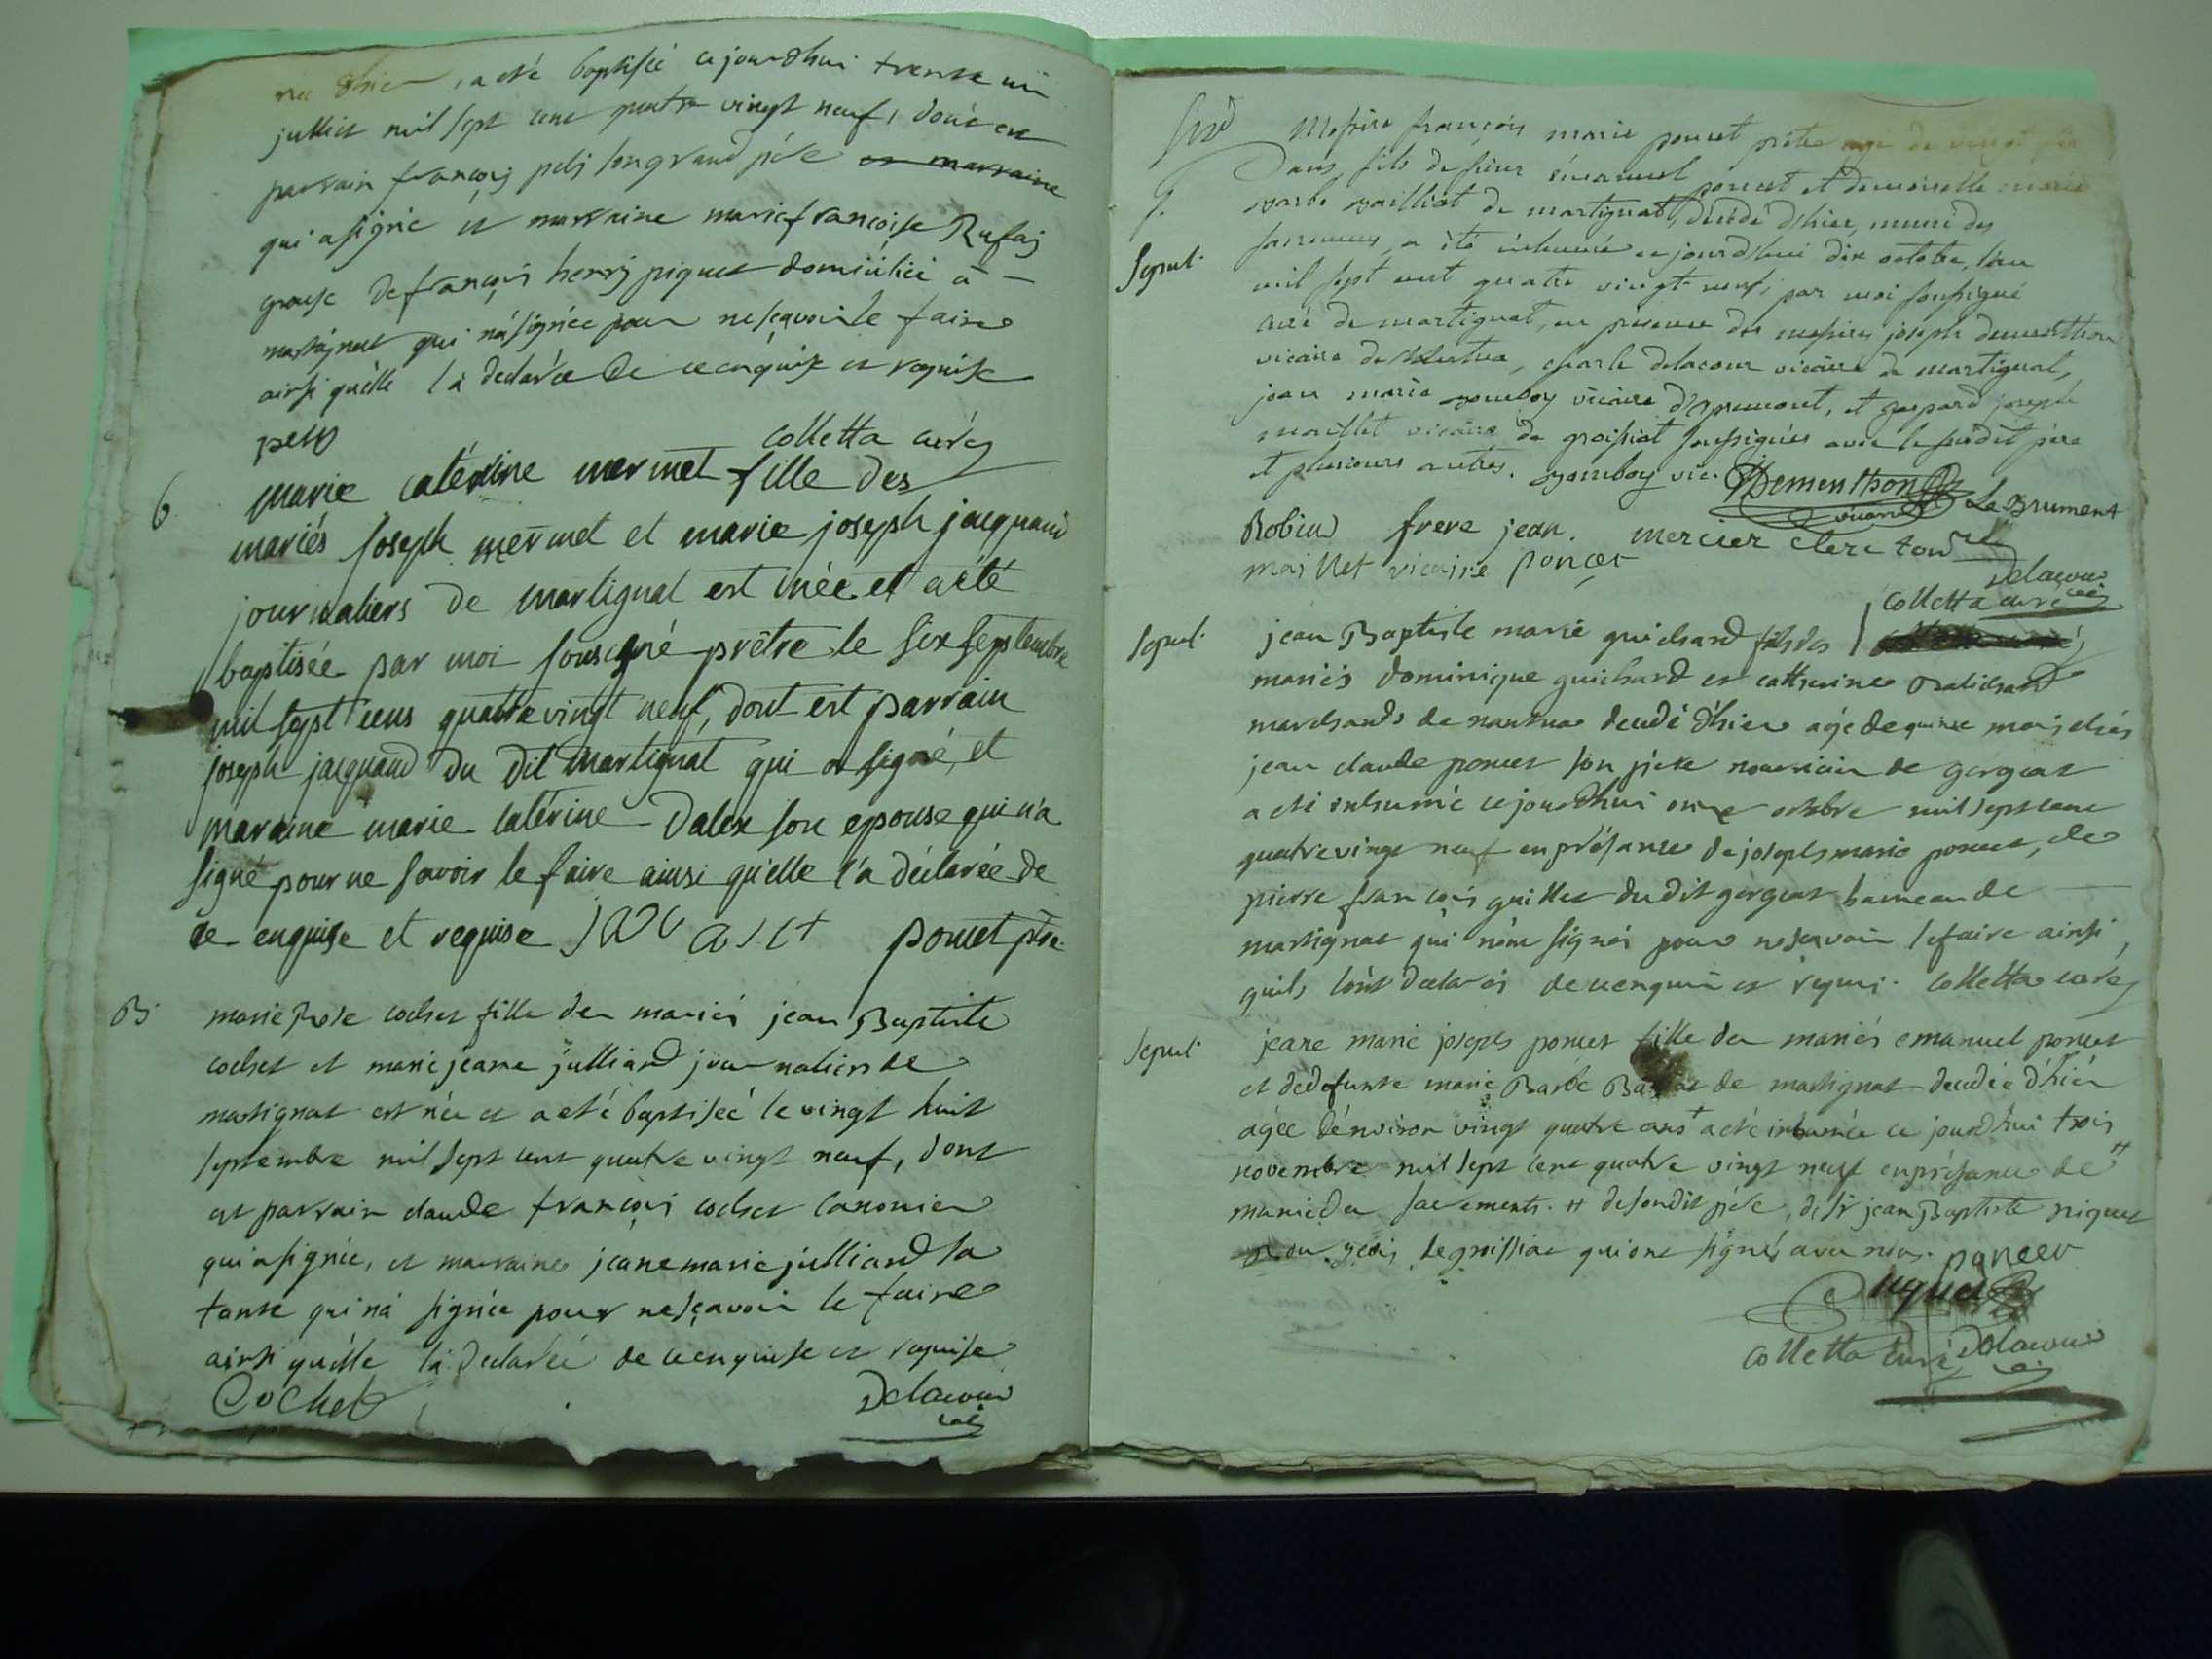 née d'hier, a eté baptisée ce jourdhui trente un
julliet mil sept cent quatre vingt neuf, dont est
parrain françois pelj son grand pére et marraine
qui a signé et marraine marie françoise Rufaj
epouse de françois henrj piquet domiciliée à
martignat qui n'a signée pour ne sçavoir le faire
ainsi quelle l'a declarée de ce enquise et requise
colletta curé
6 marie catérine mermet fille des
mariés joseph mermet et marie joseph jacquand
journaliers de martignat est née et a été
baptisée par moi soussigné prêtre le six septembre
mil sept cens quatre vingt neuf, dont est parrain
joseph jacquand du dit martignat qui a signé, et
maraine marie catérine Dalex son epouse qui n'a
signé pour ne savoir le faire ainsi qu'elle l'a déclarée de
ce enquise et requise poncet ptre
B. marie Rose cochet fille des mariés jean Baptiste
cochet et marie jeane julliard journaliers de
martignat est née et a eté baptiseé le vingt huit
septembre mil sept cent quatre vingt neuf, dont
est parrain claude françois cochet canonier
qui a signée, et marraine jeane marie julliard sa
tante qui n'a signée pour ne sçavoir le faire
ainsi quelle l'a declareé de ce enquise et requise
Cochet Delacour
vic
Messire françois marie poncet prêtre agé de vingt
Dans, fils de sieur émanuel poncet et demoiselle marie
barbe de martignat, décédé d'hier, muni des
Sepul. sacremens, a été inhumé ce jourd'hui dix octobre, l'an
mil sept cent quatre vingt neuf, par moi soussigné
curé de martignat, en présence des messires joseph dementhon
vicaire de Nantua, charle delacour vicaire de martignat,
jean marie gomboz vicaire d'apremont, et gaspard joseph
maillet vicaire de groissiat soussignés avec le susdit pére
et plusieurs autres. gomboz vic. Dementhon
vicaire Le Brument
Robin frere jean. mercier clerc tonsuré
maillet vicaire poncet Delacour
colletta curé vic
Sepul. jean Baptiste marie guichard fils des
mariés dominique guichard et catherine
marchands de nantua decedé d'hier agé de quinze mois chés
jean claude poncet son pére nouricier de gergeat
a eté inhumé ce jourdhui onze octobre mil sept cent
quatre vingt neuf en présance de joseph marie poncet, de
pierre françois guillet du dit gergeat hameau de
martignat qui n'ont signés pour ne sçavoir le faire ainsi
quils l'ont declarés de ce enquis et requis. colletta curé
Sepul. jeane marie joseph poncet fille des mariés emanuel poncet
et de defunte marie Barbe de martignat decedée d'hiér
agée d'énviron vingt quatre ans + a eté inhumée ce jourdhui trois
novembre mil sept cent quatre vingt neuf en présance de #
munie des sacrements. # de son dit pére, de sr jean Baptiste piquet
bourgeois de groissiat qui ont signés avec nous. poncet
piquet
colletta curé Delacour
vic